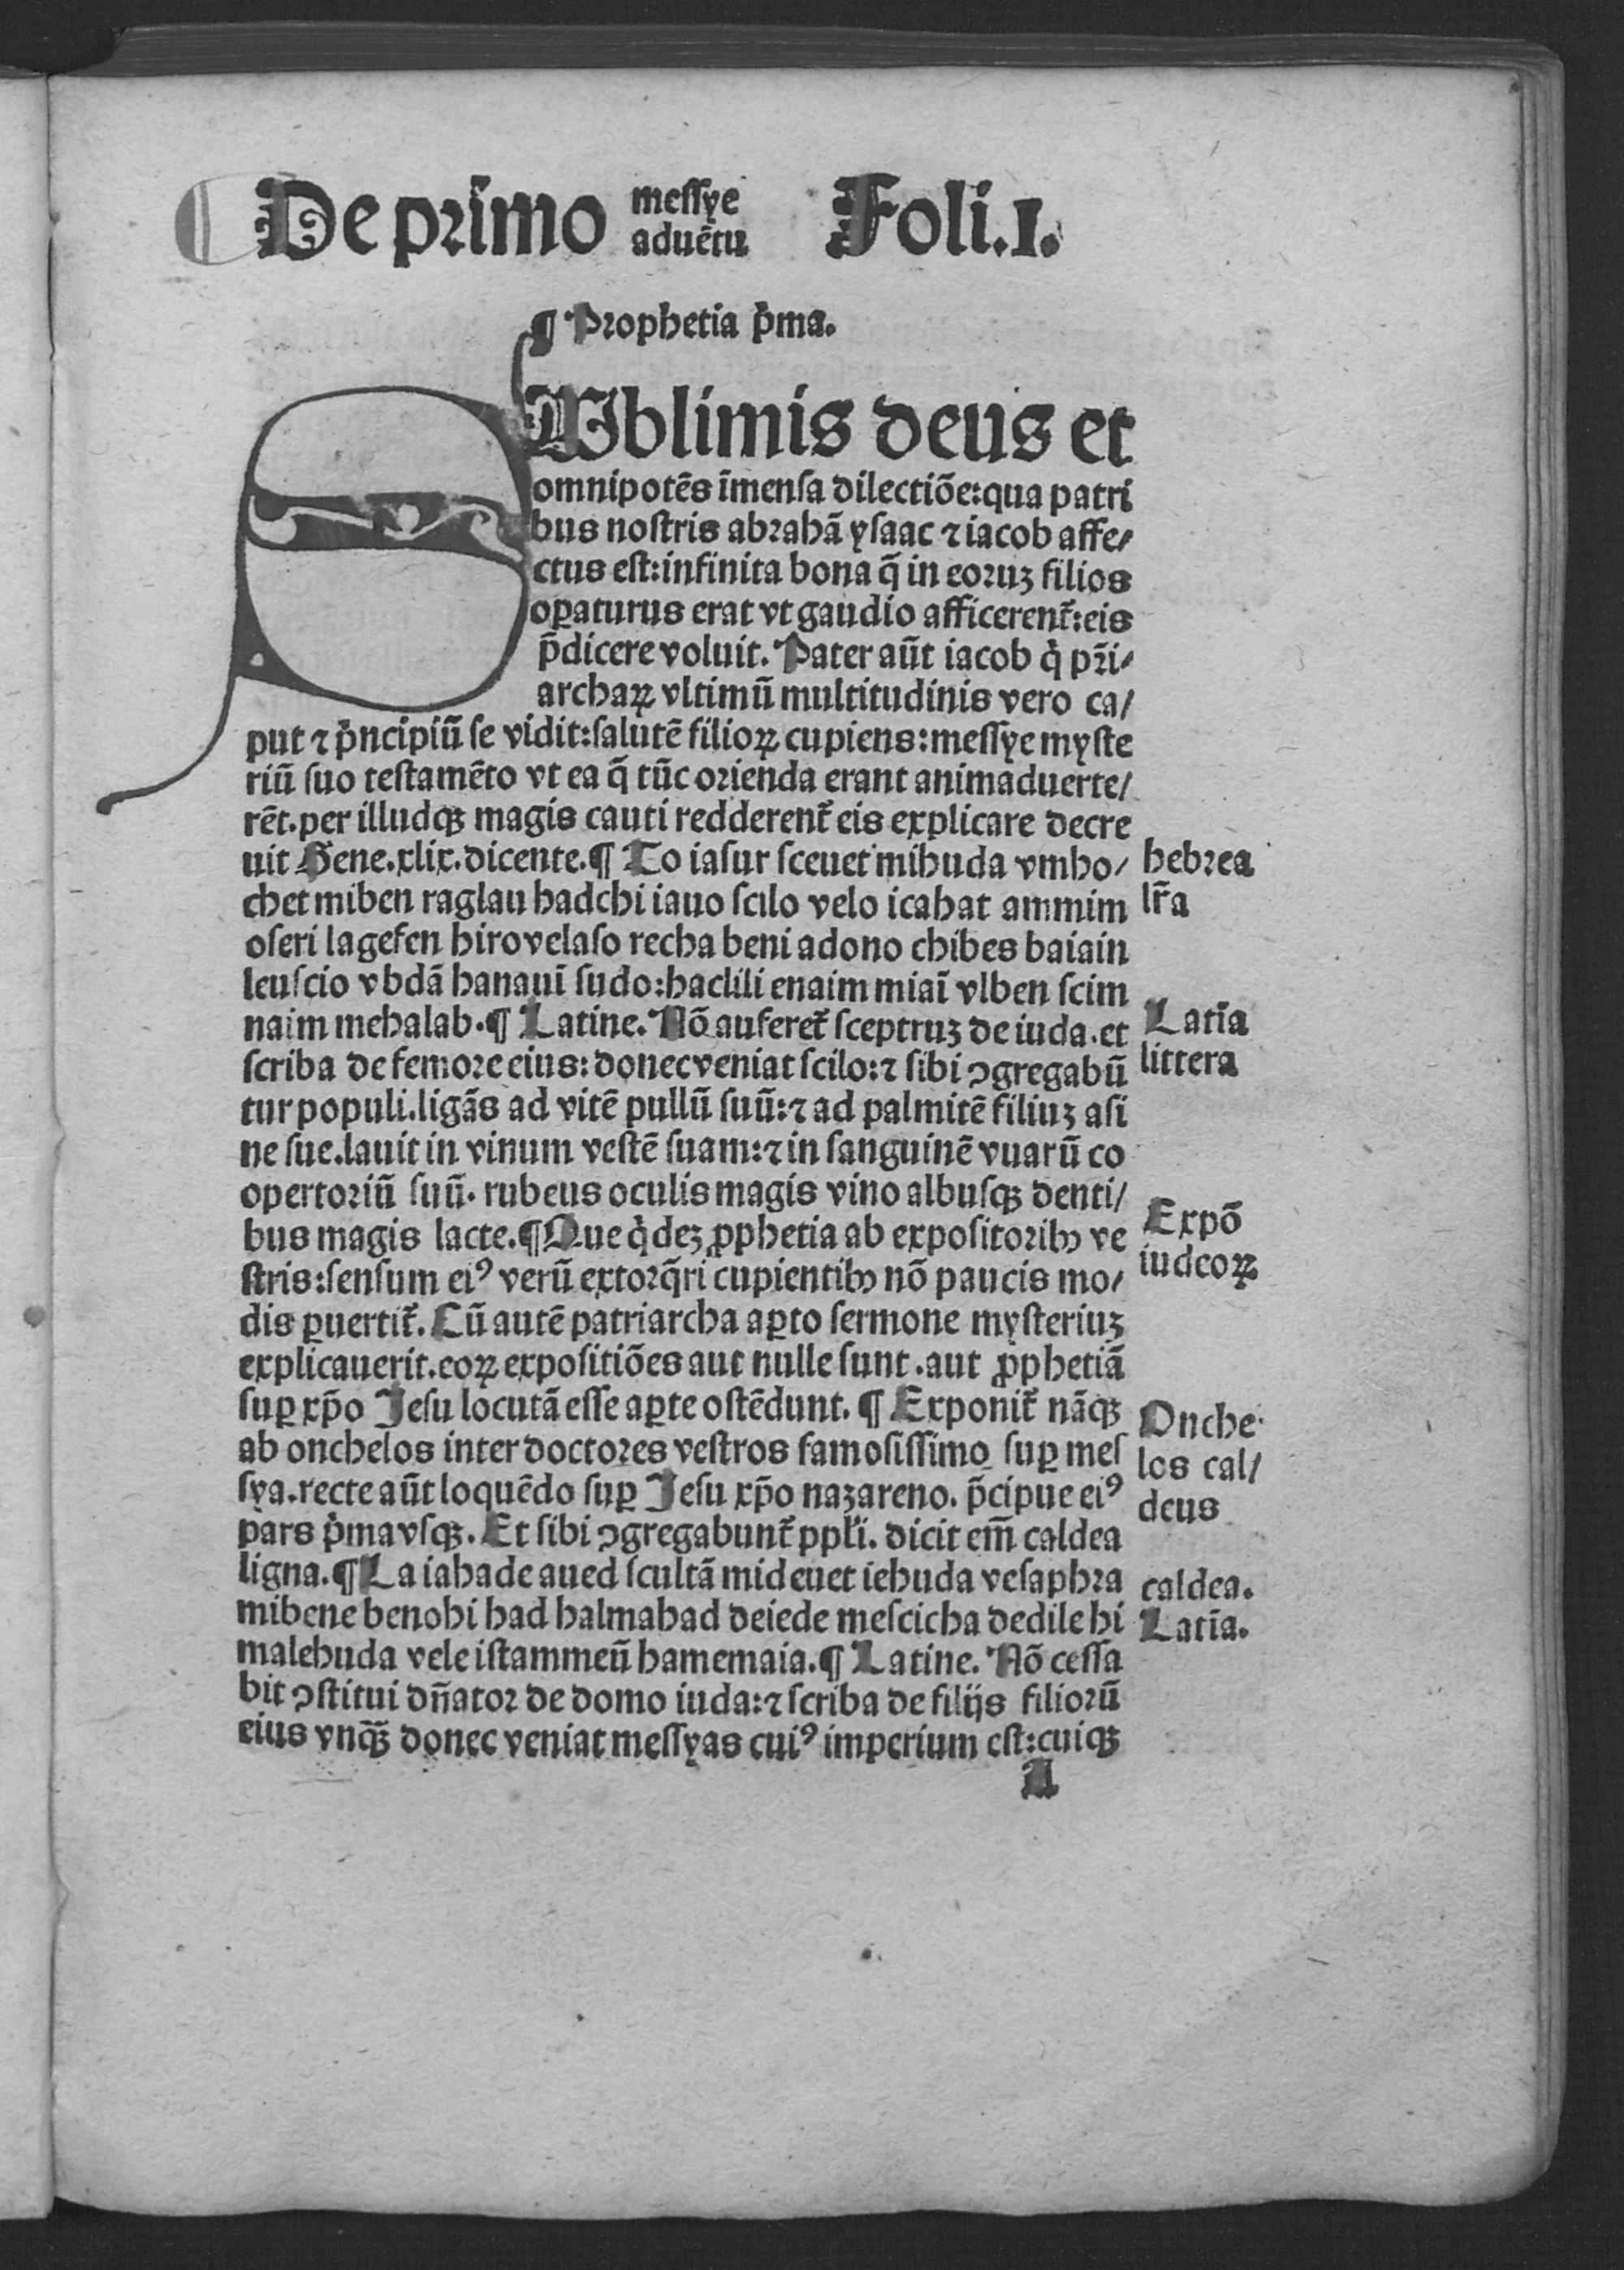 De primo messye aduētu Foli.1.
¶ Prophetia p̓ma.
SVblimis deus et
omnipotēs īmensa dilectiōe:qua patri
bus nostris abrahā ysaac ⁊ iacob affe/
ctus est:infinita bona q̄ in eoruȝ filios
oꝑaturus erat vt gaudio afficerent᷑:eis
p̄dicere voluit. Pater aūt iacob q̓ pr̄i/
archaꝝ vltimū multitudinis vero ca/
put ⁊ p̓ncipiū se vidit:salutē filioꝝ cupiens:messye myste
riū suo testamēto vt ea q̄ tūc orienda erant animaduerte/
rēt.per illudqȝ magis cauti redderent᷑ eis explicare decre
uit Gene.xlix.dicente.¶ Lo iasur sceuet mihuda vmho/
chet miben raglau hadchi iauo scilo velo icahat ammim
oseri lagefen hirovelaso recha beni adono chibes baiain
leuscio vbdā hanauī sudo:haclili enaim miaī vlben scim
naim mehalab.¶ Latine. Nō auferet᷑ sceptruȝ de iuda.et
scriba de femore eius:donec veniat scilo:⁊ sibi ꝯgregabū
tur populi.ligās ad vitē pullū suū:⁊ ad palmitē filiuȝ asi
ne sue.lauit in vinum vestē suam:⁊ in sanguinē vuarū co
opertoriū suū. rubeus oculis magis vino albusqȝ denti/
bus magis lacte.¶ Que q̓deȝ ꝓphetia ab expositoribꝰ ve
stris:sensum eiꝰ verū extorq̄ri cupientibꝰ nō paucis mo/
dis ꝑuertit᷑. Cū autē patriarcha aꝑto sermone mysteriuȝ
explicauerit.eoꝝ expositiōes aut nulle sunt.aut ꝓphetiā
suꝑ xp̄o Jesu locutā esse aꝑte ostēdunt. ¶ Exponit᷑ nāqȝ
ab onchelos inter doctores vestros famosissimo suꝑ mes
sya.recte aūt loquēdo suꝑ Jesu xp̄o nazareno. p̄cipue eiꝰ
pars p̓ma vsqȝ. Et sibi ꝯgregabunt᷑ ppl̓i. dicit em̄ caldea
ligna.¶ La iahade aued scultā mideuet iehuda vesaphra
mibene benohi had halmahad deiede mescicha dedile hi
malehuda vele istammeū hamemaia.¶ Latine. Nō cessa
bit ꝯstitui dn̄ator de domo iuda:⁊ scriba de filijs filiorū
eius vnqȝ̄ donec veniat messyas cuiꝰ imperium est:cuiqȝ
A
hebrea
lr̄a
Latīa
littera
Expō
iudeoꝝ
Onche
los cal/
deus
caldea.
Latīa.